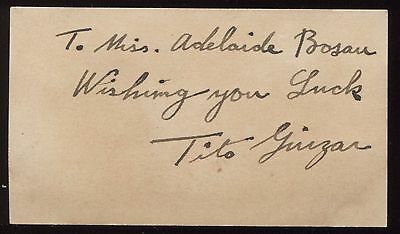 To Miss. Adelaide Bosau
Wishing you Luck
Tito Guizar